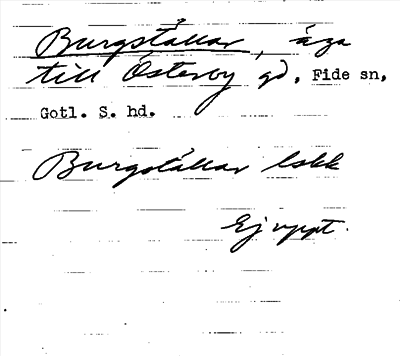 Burgställar, äga
till Österby gd. Fide sn,
Gotl. S. hd.
Burgställar lskk
Ej uppt.